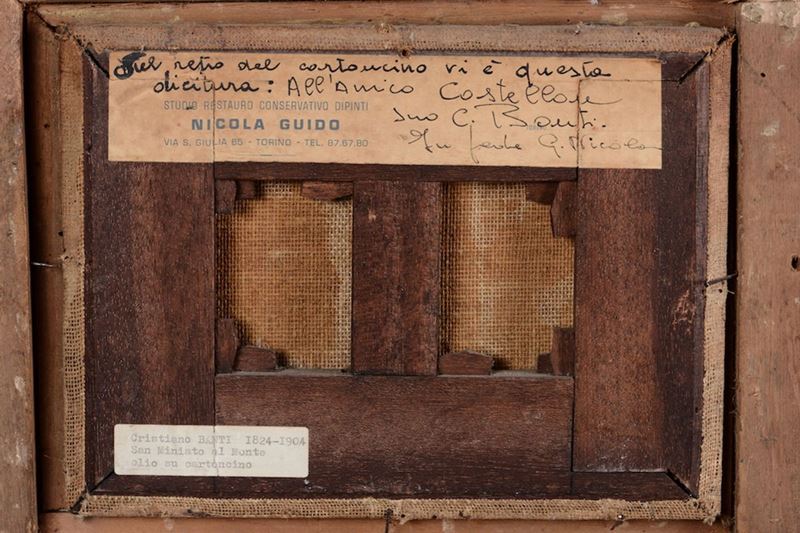 Nel retro del cartoncino vi è questa
dicitura: All'Amico Castellani
suo C. Banti.
In fede G. Nicola
STUDIO RESTAURO CONSERVATIVO DIPINTI
NICOLA GUIDO
VIA S. GIULIA 65 - TORINO - TEL. 87.67.80
Cristiano BANTI 1824-1904
San Miniato al Monte
olio su cartoncino